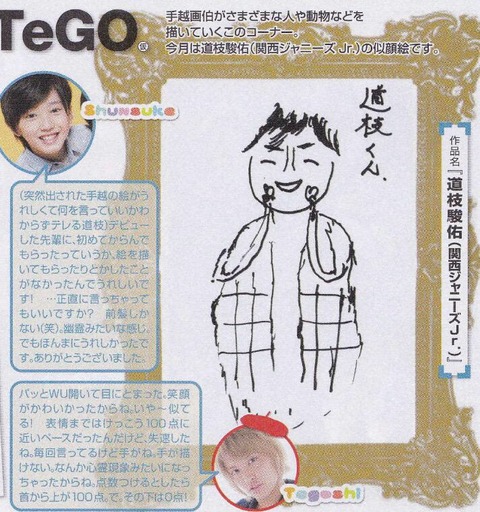 TeGO㊮
手越画伯がさまざまな人や動物などを
描いていくこのコーナー。
今月は道枝駿佑(関西ジャニーズJr.)の似顔絵です。
Shunsuke
道枝くん
作品名『道枝駿佑(関西ジャニーズJr.)』
(突然出された手越の絵がう
れしくて何を言っていいかわ
からずテレる道枝)デビュー
した先輩に、初めてからんで
もらったっていうか。絵を描
いてもらったりとかしたこと
がなかったんでうれしいで
す! …正直に言っちゃって
もいいですか? 前髪しか
ない(笑)。幽霊みたいな感じ、
でもほんまにうれしかったで
す。ありがとうございました。
パッとWU開いて目にとまった。笑顔
がかわいかったからね。いや〜似て
る! 表情まではけっこう100点に
近いペースだったんだけど、失速した
ね。毎回言ってるけど手がね。手が描
けない。なんか心霊現象みたいになっ
ちゃったからね。点数つけるとしたら
首から上が100点。で、その下は0点!
Tegoshi